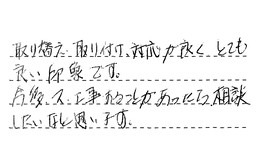 取り替え 取り付け、対応が良く とても
良い印象です。
今後、又、工事することがあったら相談
したいなと思います。